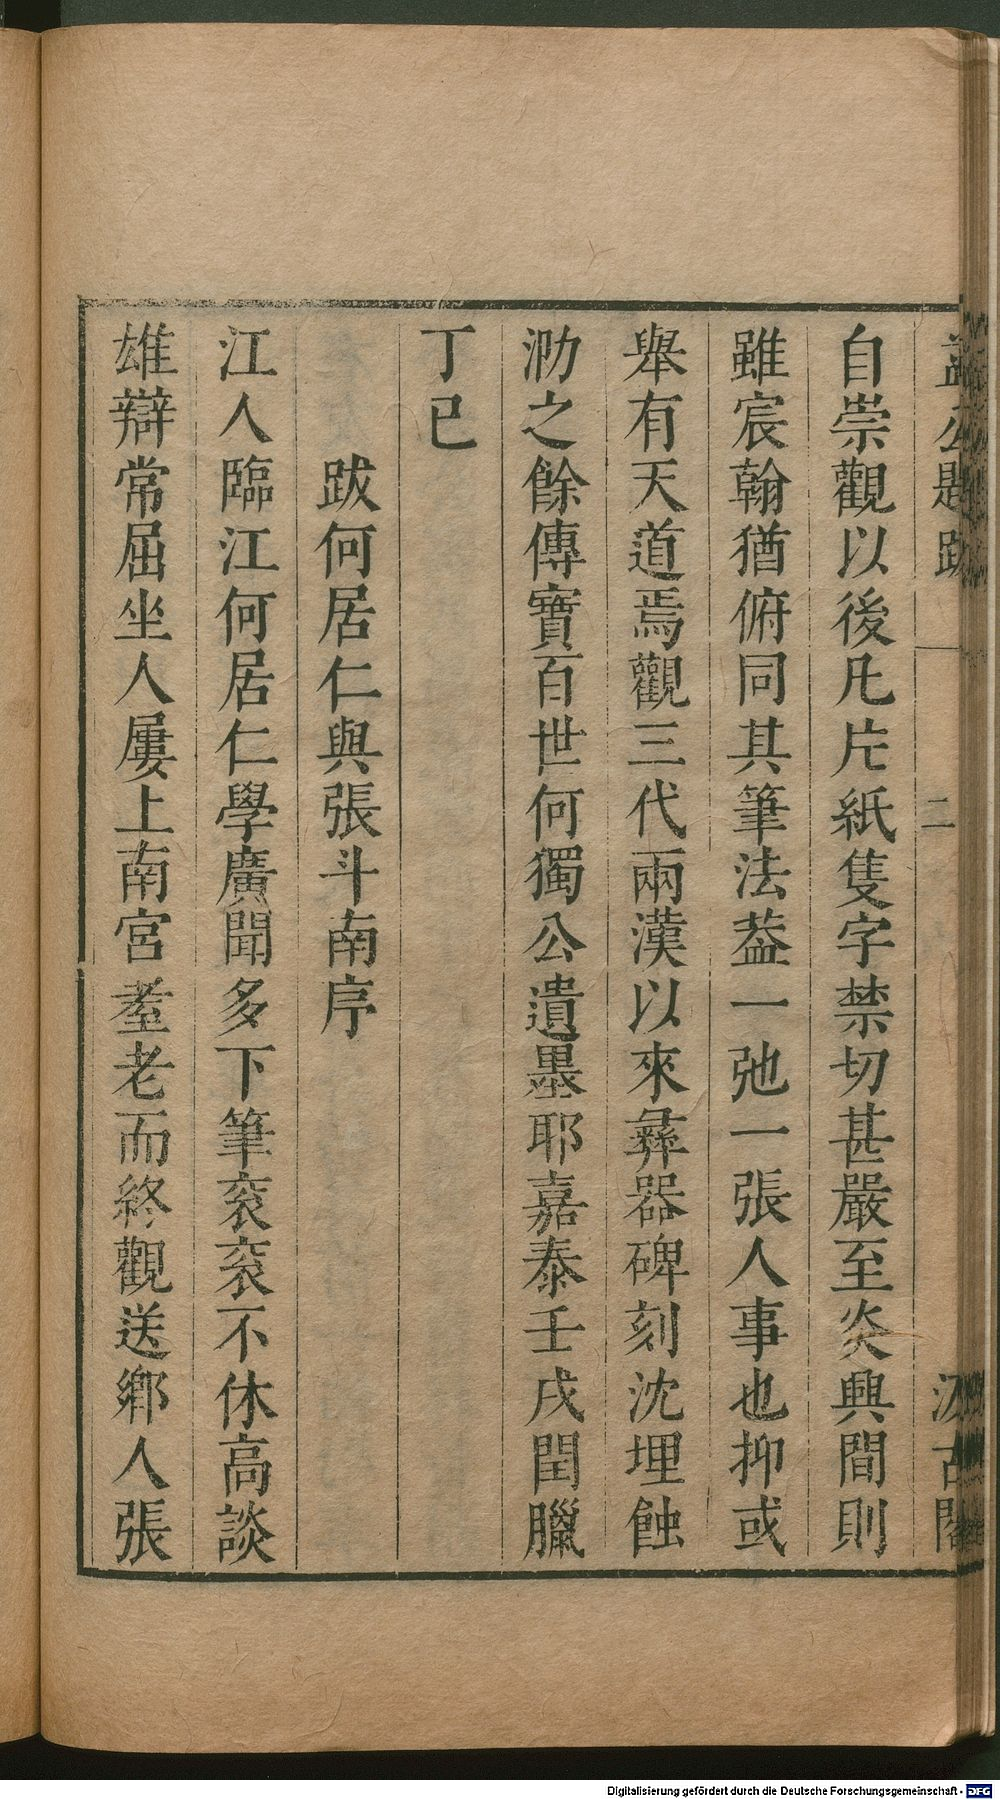 益公題跋 一 二 汲古閣
自崇觀以後凡片紙隻字禁切甚嚴至炎興間則
雖宸翰猶俯同其筆法葢一弛一張人事也抑或
舉有天道焉觀三代兩漢以來彝器碑刻沈埋蝕
泐之餘傳寶百世何獨公遺墨耶嘉泰壬戌閏臘
丁巳
跋何居仁與張斗南序
江人臨江何居仁學廣聞多下筆衮衮不休高談
雄辯常屈坐人屢上南宮耊老而終觀送鄉人張
Digitalisierung gefördert durch die Deutsche Forschungsgemeinschaft - DFG